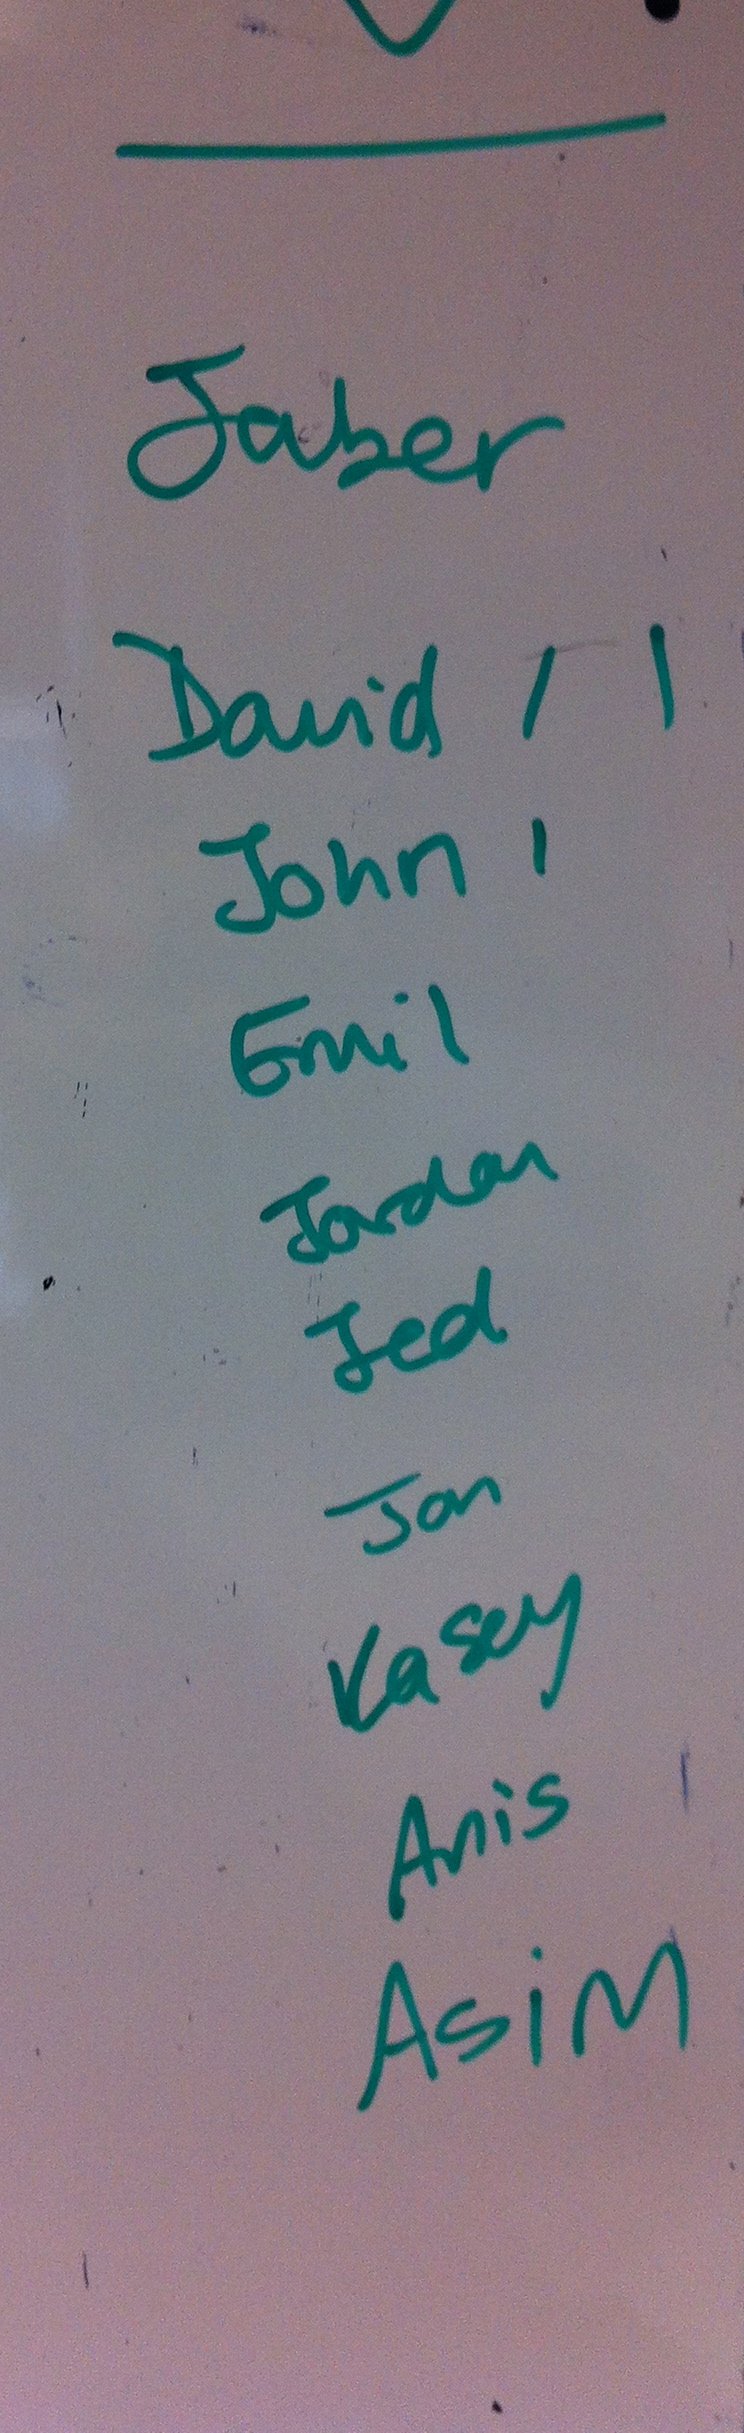 Jaber
David I I
John I
Emil
Jordan
Jed
Jon
Kasey
Anis
ASiM